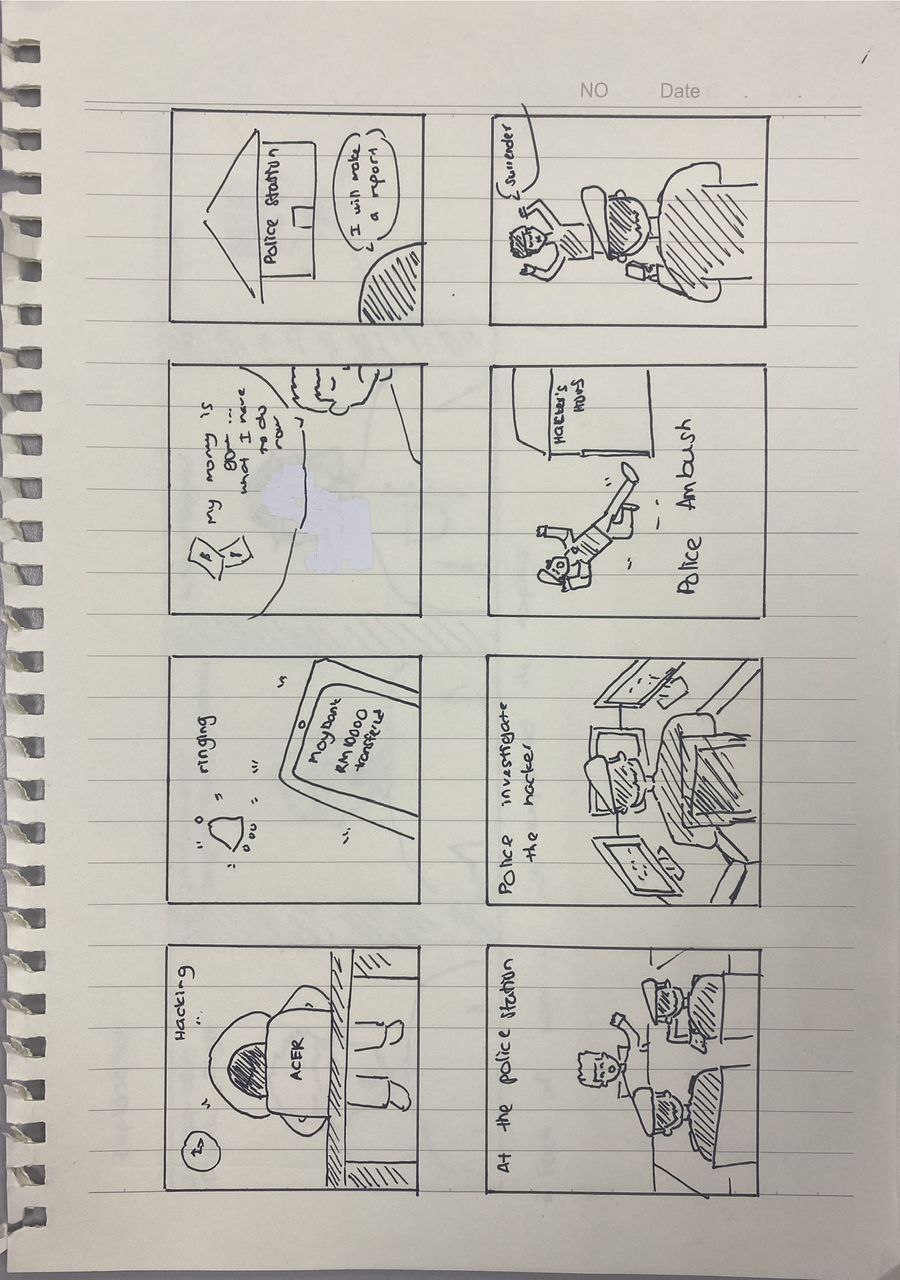 Hacking
...
ACER
ringing
MayBank
RM 10000
transfered
my money is
what I have
to do
now
Police Station
I will make
a report
At the police station
Police investigate
the hacker
HACKER'S
Police Ambush
surrender
NO Date